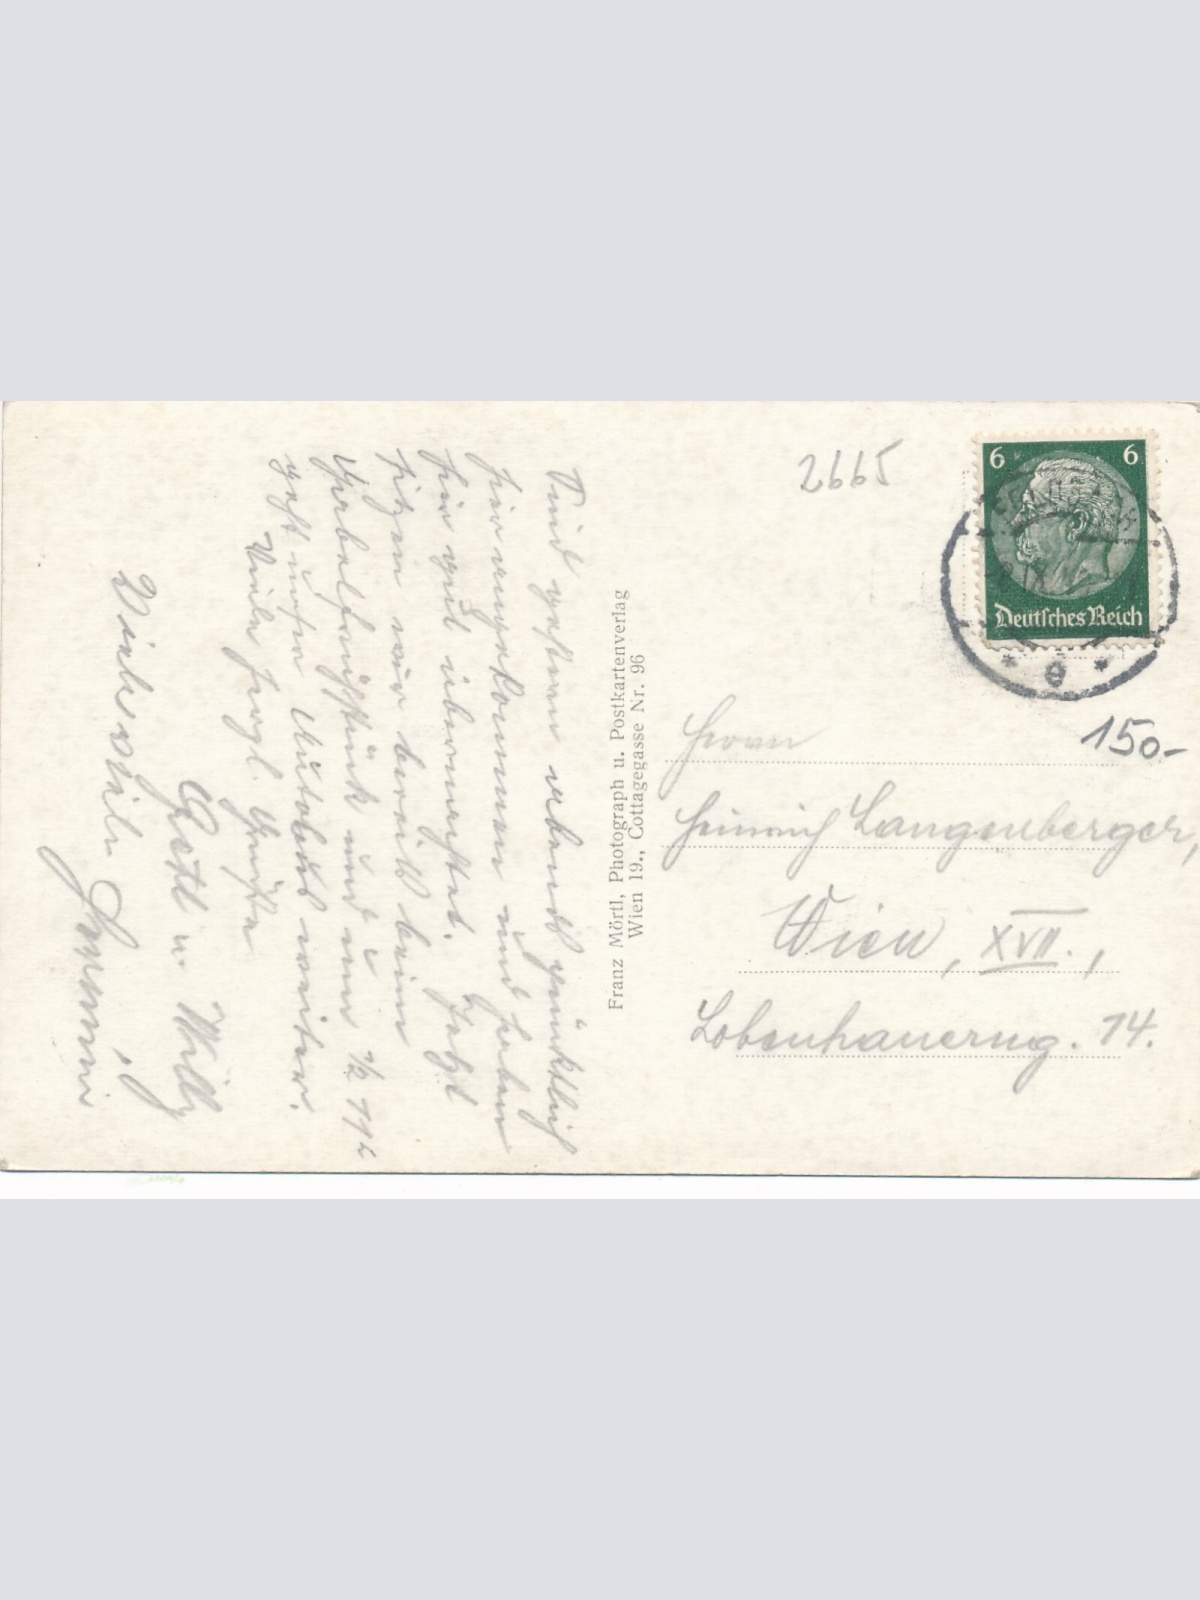 Sind gestern abends pünktlich
hier angekommen und haben
hier gut übernachtet. Jetzt
sitzen wir bereits beim
Gabelfrühstück und um 1/2 11h
geht unser Autobus weiter.
Viele herzl. Grüße
Gretl u. Willy
Viele
Franz Mörtl, Photograph u. Postkartenverlag
Wien 19., Cottagegasse Nr. 96
2665
6 6
Deutsches Reich
* e *
150-
Herrn
Heinrich Langenberger,
Wien, XVII.,
Lobenhauerng. 14.